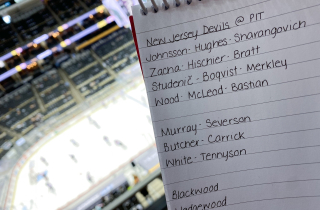 New Jersey Devils @ PIT
Johnsson · Hughes · Sharangovich
Zacha · Hischier · Bratt
Studenič · Boqvist · Merkley
Wood · McLeod · Bastian
Murray · Severson
Butcher · Carrick
White · Tennyson
Blackwood
Wedgewood